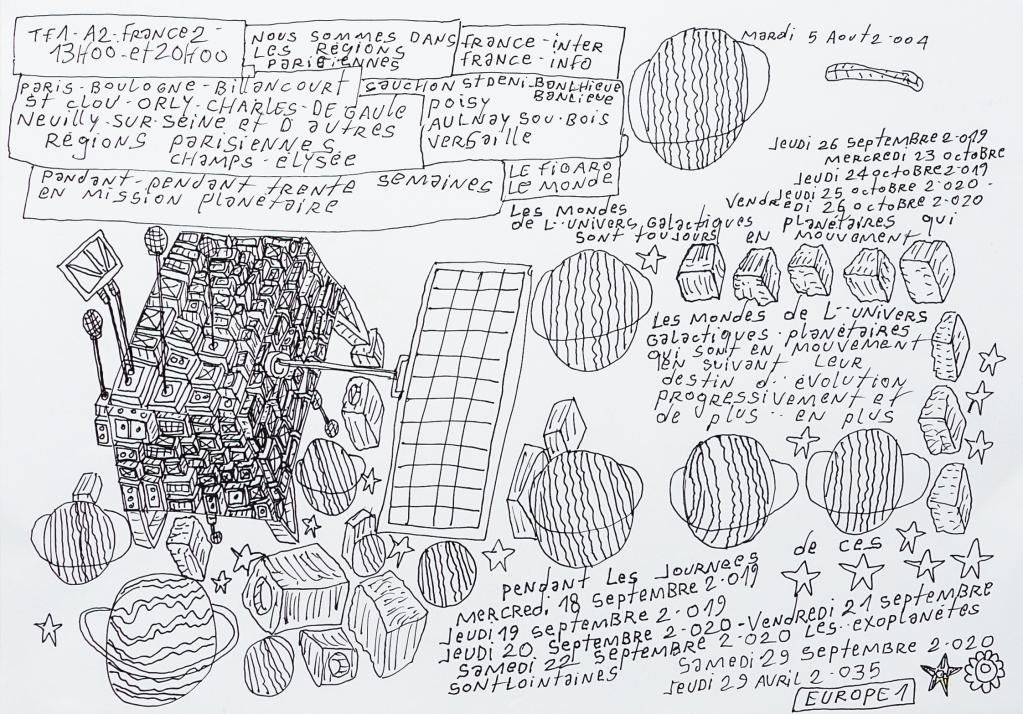 TF1-A2-FRANCE2-
13H00-et 20H00
NOUS SOMMES DANS
LES RÉGIONS
PARISIENNES
FRANCE-inter
FRANCE-info
PARIS-BOULOGNE-BILLANCOURT
St CLOU-ORLY-CHARLES-DE GAULE
NEUILLY-SUR-SEINE et D'AUTRES
RÉGIONS PARISIENNES
CHAMPS-ELYSÉE
GAUCHON ST DENI-BANLHIEUE
BANLIEUE
POISY
AULNAY SOU-BOIS
VERSAILLE
PANDANT-PENDANT TRENTE SEMAINES
EN MISSION PLANÉTAIRE
LE FIGARO
LE MONDE
MARDI 5 AOUT 2-004
JEUDI 26 SEPTEMBRE 2-019
MERCREDI 23 OCTOBRE
JEUDI 24 OCTOBRE 2-019
JEUDI 25 OCTOBRE 2-020-
VENDREDI 26 OCTOBRE 2-020
LES MONDES
DE L'UNIVERS GALACTIQUES PLANÉTAIRES QUI
SONT TOUJOURS EN MOUVEMENT
LES MONDES DE L'UNIVERS
GALACTIQUES-PLANÉTAIRES
QUI SONT EN MOUVEMENT
EN SUIVANT LEUR
DESTIN D'ÉVOLUTION
PROGRESSIVEMENT ET
DE PLUS EN PLUS
PENDANT LES JOURNEES DE CES
MERCREDI 18 SEPTEMBRE 2-019
JEUDI 19 SEPTEMBRE 2-019
JEUDI 20 SEPTEMBRE 2-020-VENDREDI 21 SEPTEMBRE
SAMEDI 22 SEPTEMBRE 2-020 LES EXOPLANÈTES
SONT LOINTAINES
SAMEDI 29 SEPTEMBRE 2-020
JEUDI 29 AVRIL 2-035
EUROPE 1